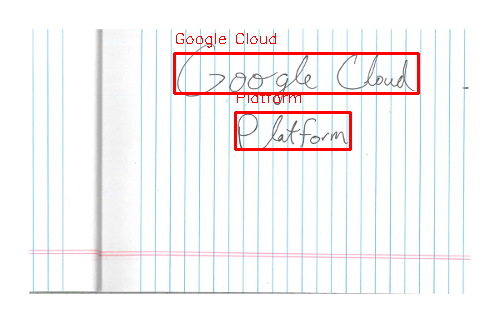 Google Cloud
Google Cloud
Platform
Platform